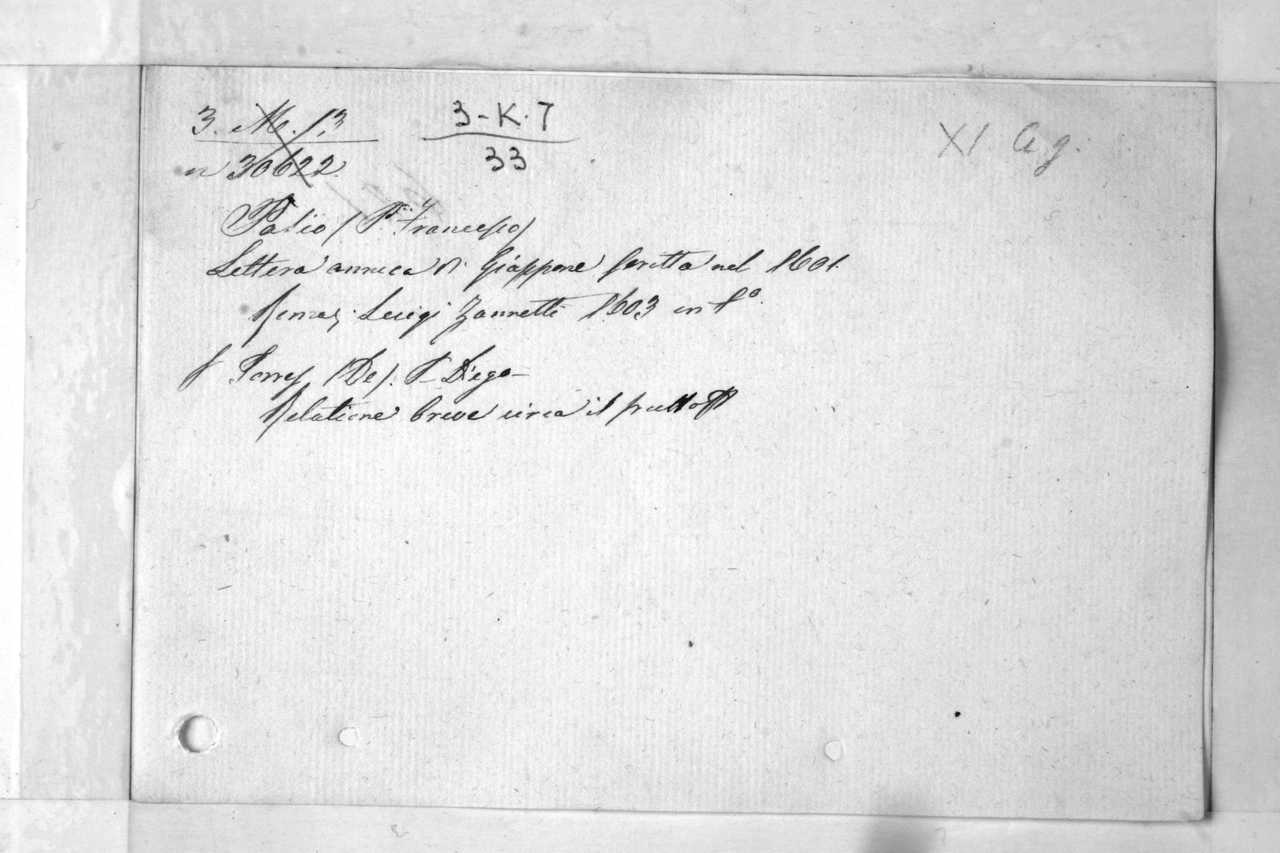 3. M. 13
3-K.7
33
XI a g.
n 30622
Pasio / P. Francesco /
Lettera annua di Giappone scritta nel 1601.
Roma, Luigi Zannetti 1603 in f°.
f Torres / De /. P. Diego
Relatione breve circa il frutto